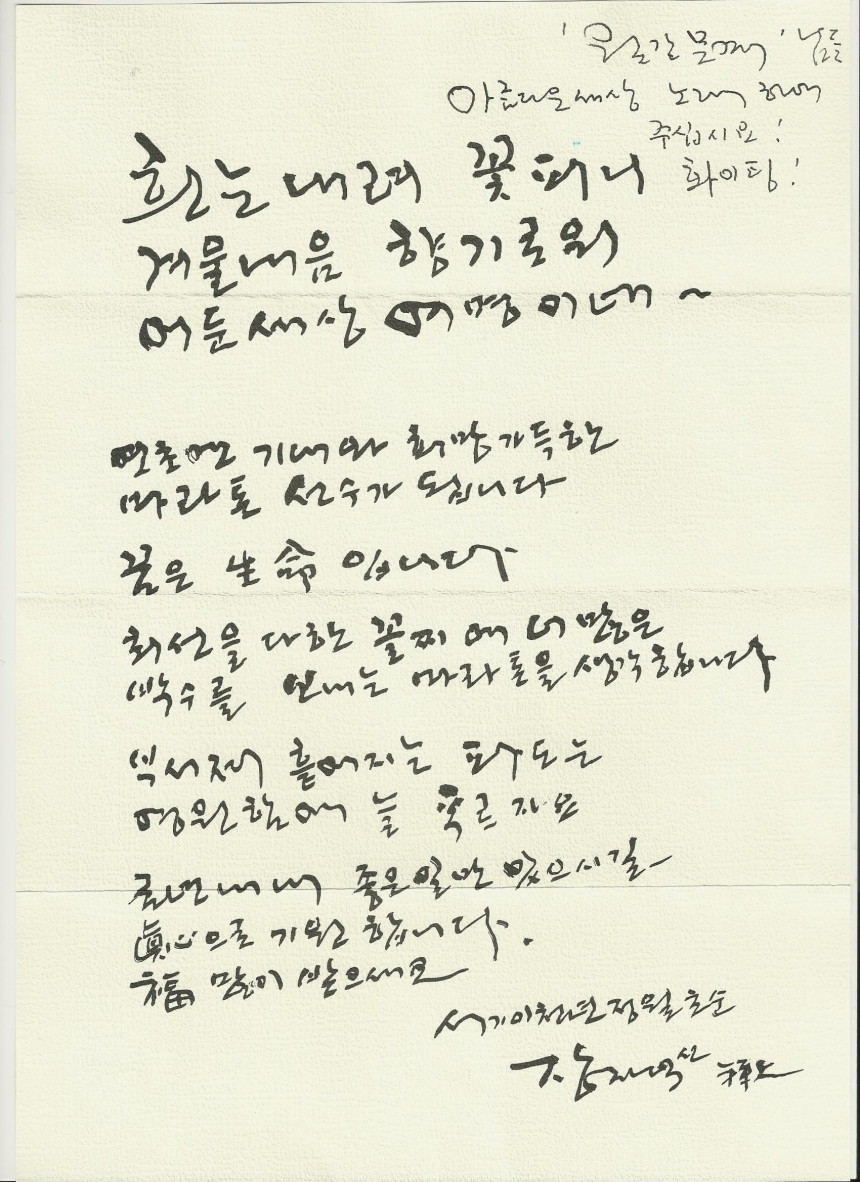 '월간문찌' 님들
아름다운세상 노래하여
주십시요!
화이팅!
흰눈내려 꽃피니
겨울내음 향기로워
어둔세상 여명이네~
연초엔 기대와 희망가득하는
마라톤 선수가 되입니다
꿈은 生命 입니다
최선을 다한 꼴찌에 더 많은
박수를 보내는 마라톤을 생각합니다
부서져 흩어지는 파도는
영원함에 늘 푸르지요
금년내내 좋은일만 있으시길
眞心으로 기원합니다.
福 많이 받으세요
서기이천년정월초순